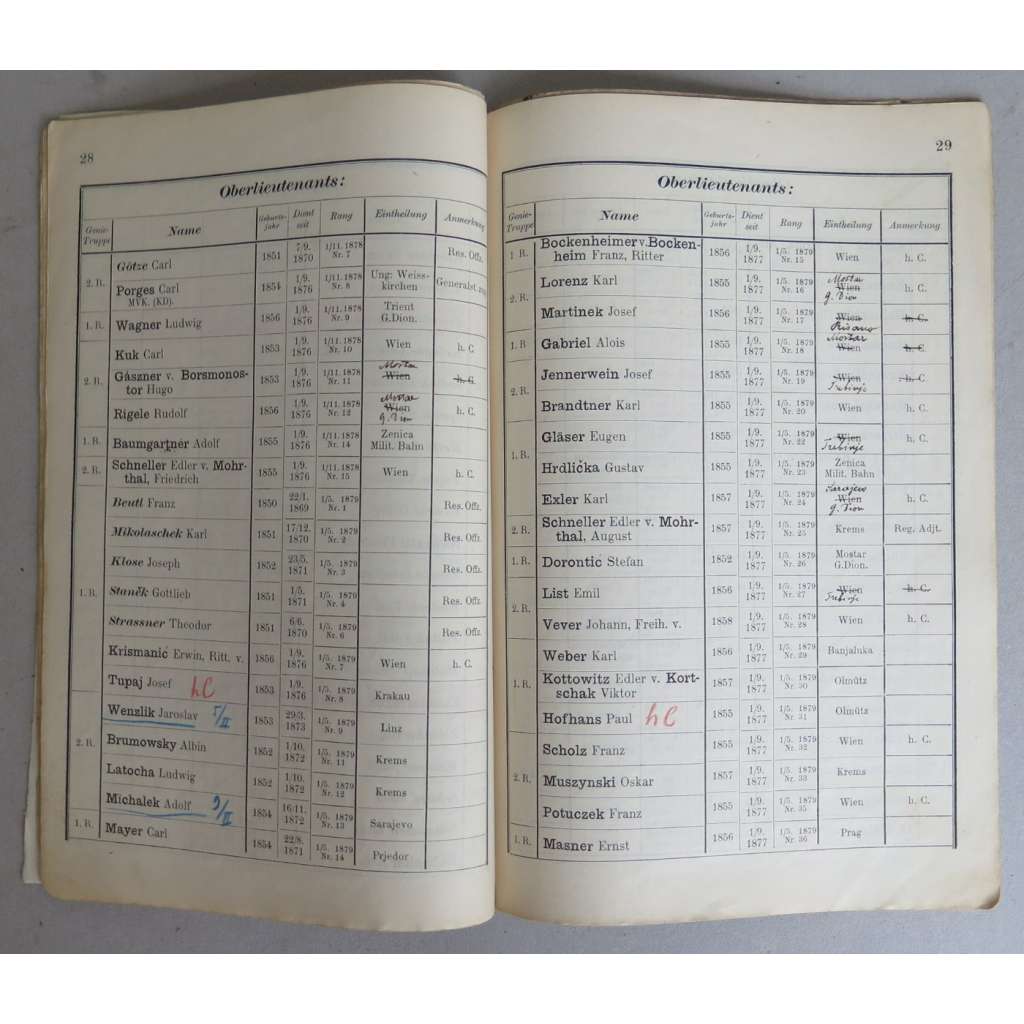 28
Oberlieutenants:
Genie-Truppe Name Geburts-jahr Dient seit Rang Eintheilung Anmerkung
Götze Carl 1851 7/9. 1870 1/11. 1878 Nr. 7 Res. Offz.
2. R. Porges Carl MVK. (KD). 1854 1/9. 1876 1/11. 1878 Nr. 8 Ung: Weiss-kirchen Generalst.
1. R. Wagner Ludwig 1856 1/9. 1876 1/11. 1878 Nr. 9 Trient G.Dion.
Kuk Carl 1853 1/9. 1876 1/11. 1878 Nr. 10 Wien h. C.
2. R. Gàszner v. Borsmonos-tor Hugo 1853 1/9. 1876 1/11. 1878 Nr. 11 Mostar Wien h. C.
Rigele Rudolf 1856 1/9. 1876 1/11. 1878 Nr. 12 Mostar Wien g. Dion h. C.
1. R. Baumgartner Adolf 1855 1/9. 1876 1/11. 1878 Nr. 14 Zenica Milit. Bahn
2. R. Schneller Edler v. Mohr-thal, Friedrich 1855 1/9. 1876 1/11. 1878 Nr. 15 Wien h. C.
Beutl Franz 1850 22/1. 1869 1/5. 1879 Nr. 1 Res. Offz.
Mikolaschek Karl 1851 17/12. 1870 1/5. 1879 Nr. 2 Res. Offz.
Klose Joseph 1852 23/5. 1871 1/5. 1879 Nr. 3 Res. Offz.
1. R. Staněk Gottlieb 1851 1/5. 1871 1/5. 1879 Nr. 4 Res. Offz.
Strassner Theodor 1851 6/6. 1870 1/5. 1879 Nr. 6 Res. Offz.
Krismanić Erwin, Ritt. v. 1856 1/9. 1876 1/5. 1879 Nr. 7 Wien h. C.
Tupaj Josef hC 1853 1/9. 1876 1/5. 1879 Nr. 8 Krakau
Wenzlik Jaroslav 5/II 1853 29/3. 1873 1/5. 1879 Nr. 9 Linz
2. R. Brumowsky Albin 1852 1/10. 1872 1/5. 1879 Nr. 11 Krems
Latocha Ludwig 1852 1/10. 1872 1/5. 1879 Nr. 12 Krems
Michalek Adolf 9/II 1854 16/11. 1872 1/5. 1879 Nr. 13 Sarajevo
1. R. Mayer Carl 1854 22/8. 1871 1/5. 1879 Nr. 14 Prjedor
29
Oberlieutenants:
Genie-Truppe Name Geburts-jahr Dient seit Rang Eintheilung Anmerkung
1 R. Bockenheimer v. Bocken-heim Franz, Ritter 1856 1/9. 1877 1/5. 1879 Nr. 15 Wien h. C.
2. R. Lorenz Karl 1855 1/9. 1877 1/5. 1879 Nr. 16 Mostar Wien g. Dion h. C.
Martinek Josef 1855 1/9. 1877 1/5. 1879 Nr. 17 Wien Risano h. C.
1. R Gabriel Alois 1855 1/9. 1877 1/5. 1879 Nr. 18 Mostar Wien h. C
2. R. Jennerwein Josef 1855 1/9. 1877 1/5. 1879 Nr. 19 Wien Trebinje h. C
Brandtner Karl 1855 1/9. 1877 1/5. 1879 Nr. 20 Wien h. C.
1. R. Gläser Eugen 1855 1/9. 1877 1/5. 1879 Nr. 22 Wien Trebinje h. C.
Hrdlička Gustav 1855 1/9. 1877 1/5. 1879 Nr. 23 Zenica Milit. Bahn
Exler Karl 1857 1/9. 1877 1/5. 1879 Nr. 24 Sarajevo Wien g. Dion h. C.
2. R. Schneller Edler v. Mohr-thal, August 1857 1/9. 1877 1/5. 1879 Nr. 25 Krems Reg. Adjt.
1. R. Dorontić Stefan 1852 1/9. 1877 1/5. 1879 Nr. 26 Mostar G.Dion.
2. R. List Emil 1856 1/9. 1877 1/5. 1879 Nr. 27 Wien Trebinje h. C.
Vever Johann, Freih. v. 1858 1/9. 1877 1/5. 1879 Nr. 28 Wien h. C.
Weber Karl 1856 1/9. 1877 1/5. 1879 Nr. 29 Banjaluka
1. R. Kottowitz Edler v. Kort-schak Viktor 1857 1/9. 1877 1/5. 1879 Nr. 30 Olmütz
Hofhans Paul hC 1855 1/9. 1877 1/5. 1879 Nr. 31 Olmütz
Scholz Franz 1855 1/9. 1877 1/5. 1879 Nr. 32 Wien h. C.
2. R. Muszynski Oskar 1857 1/9. 1877 1/5. 1879 Nr. 33 Krems
Potuczek Franz 1855 1/9. 1877 1/5. 1879 Nr. 35 Wien h. C.
1. R. Masner Ernst 1856 1/9. 1877 1/5. 1879 Nr. 36 Prag